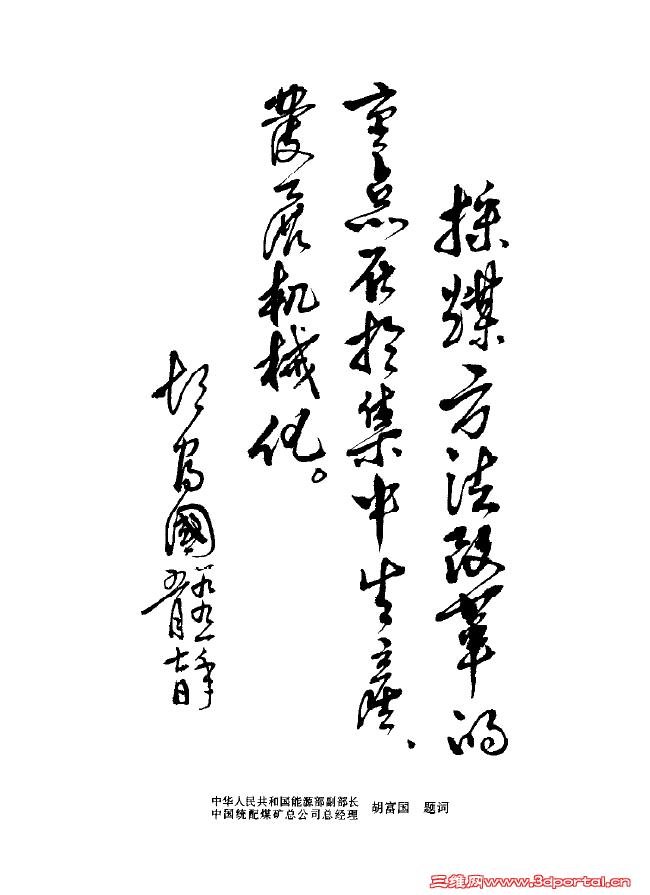 採煤方法改革的
重点在於集中生産、
發展机械化。
胡富國
一九九一年
七日
中华人民共和国能源部副部长
中国统配煤矿总公司总经理
胡富国 题词
三维网www.3dportal.cn